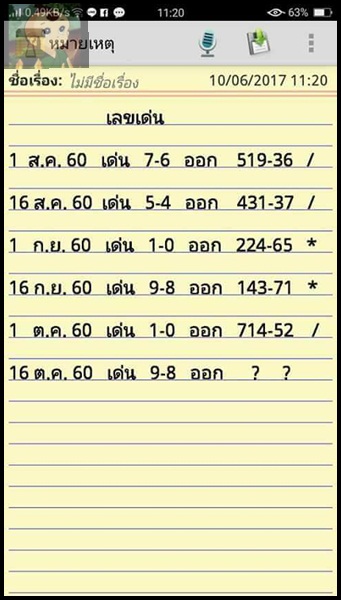 0.49KB/s 11:20 63%
หมายเหตุ
ชื่อเรื่อง: ไม่มีชื่อเรื่อง 10/06/2017 11:20
เลขเด่น
1 ส.ค. 60 เด่น 7-6 ออก 519-36 /
16 ส.ค. 60 เด่น 5-4 ออก 431-37 /
1 ก.ย. 60 เด่น 1-0 ออก 224-65 *
16 ก.ย. 60 เด่น 9-8 ออก 143-71 *
1 ต.ค. 60 เด่น 1-0 ออก 714-52 /
16 ต.ค. 60 เด่น 9-8 ออก ? ?